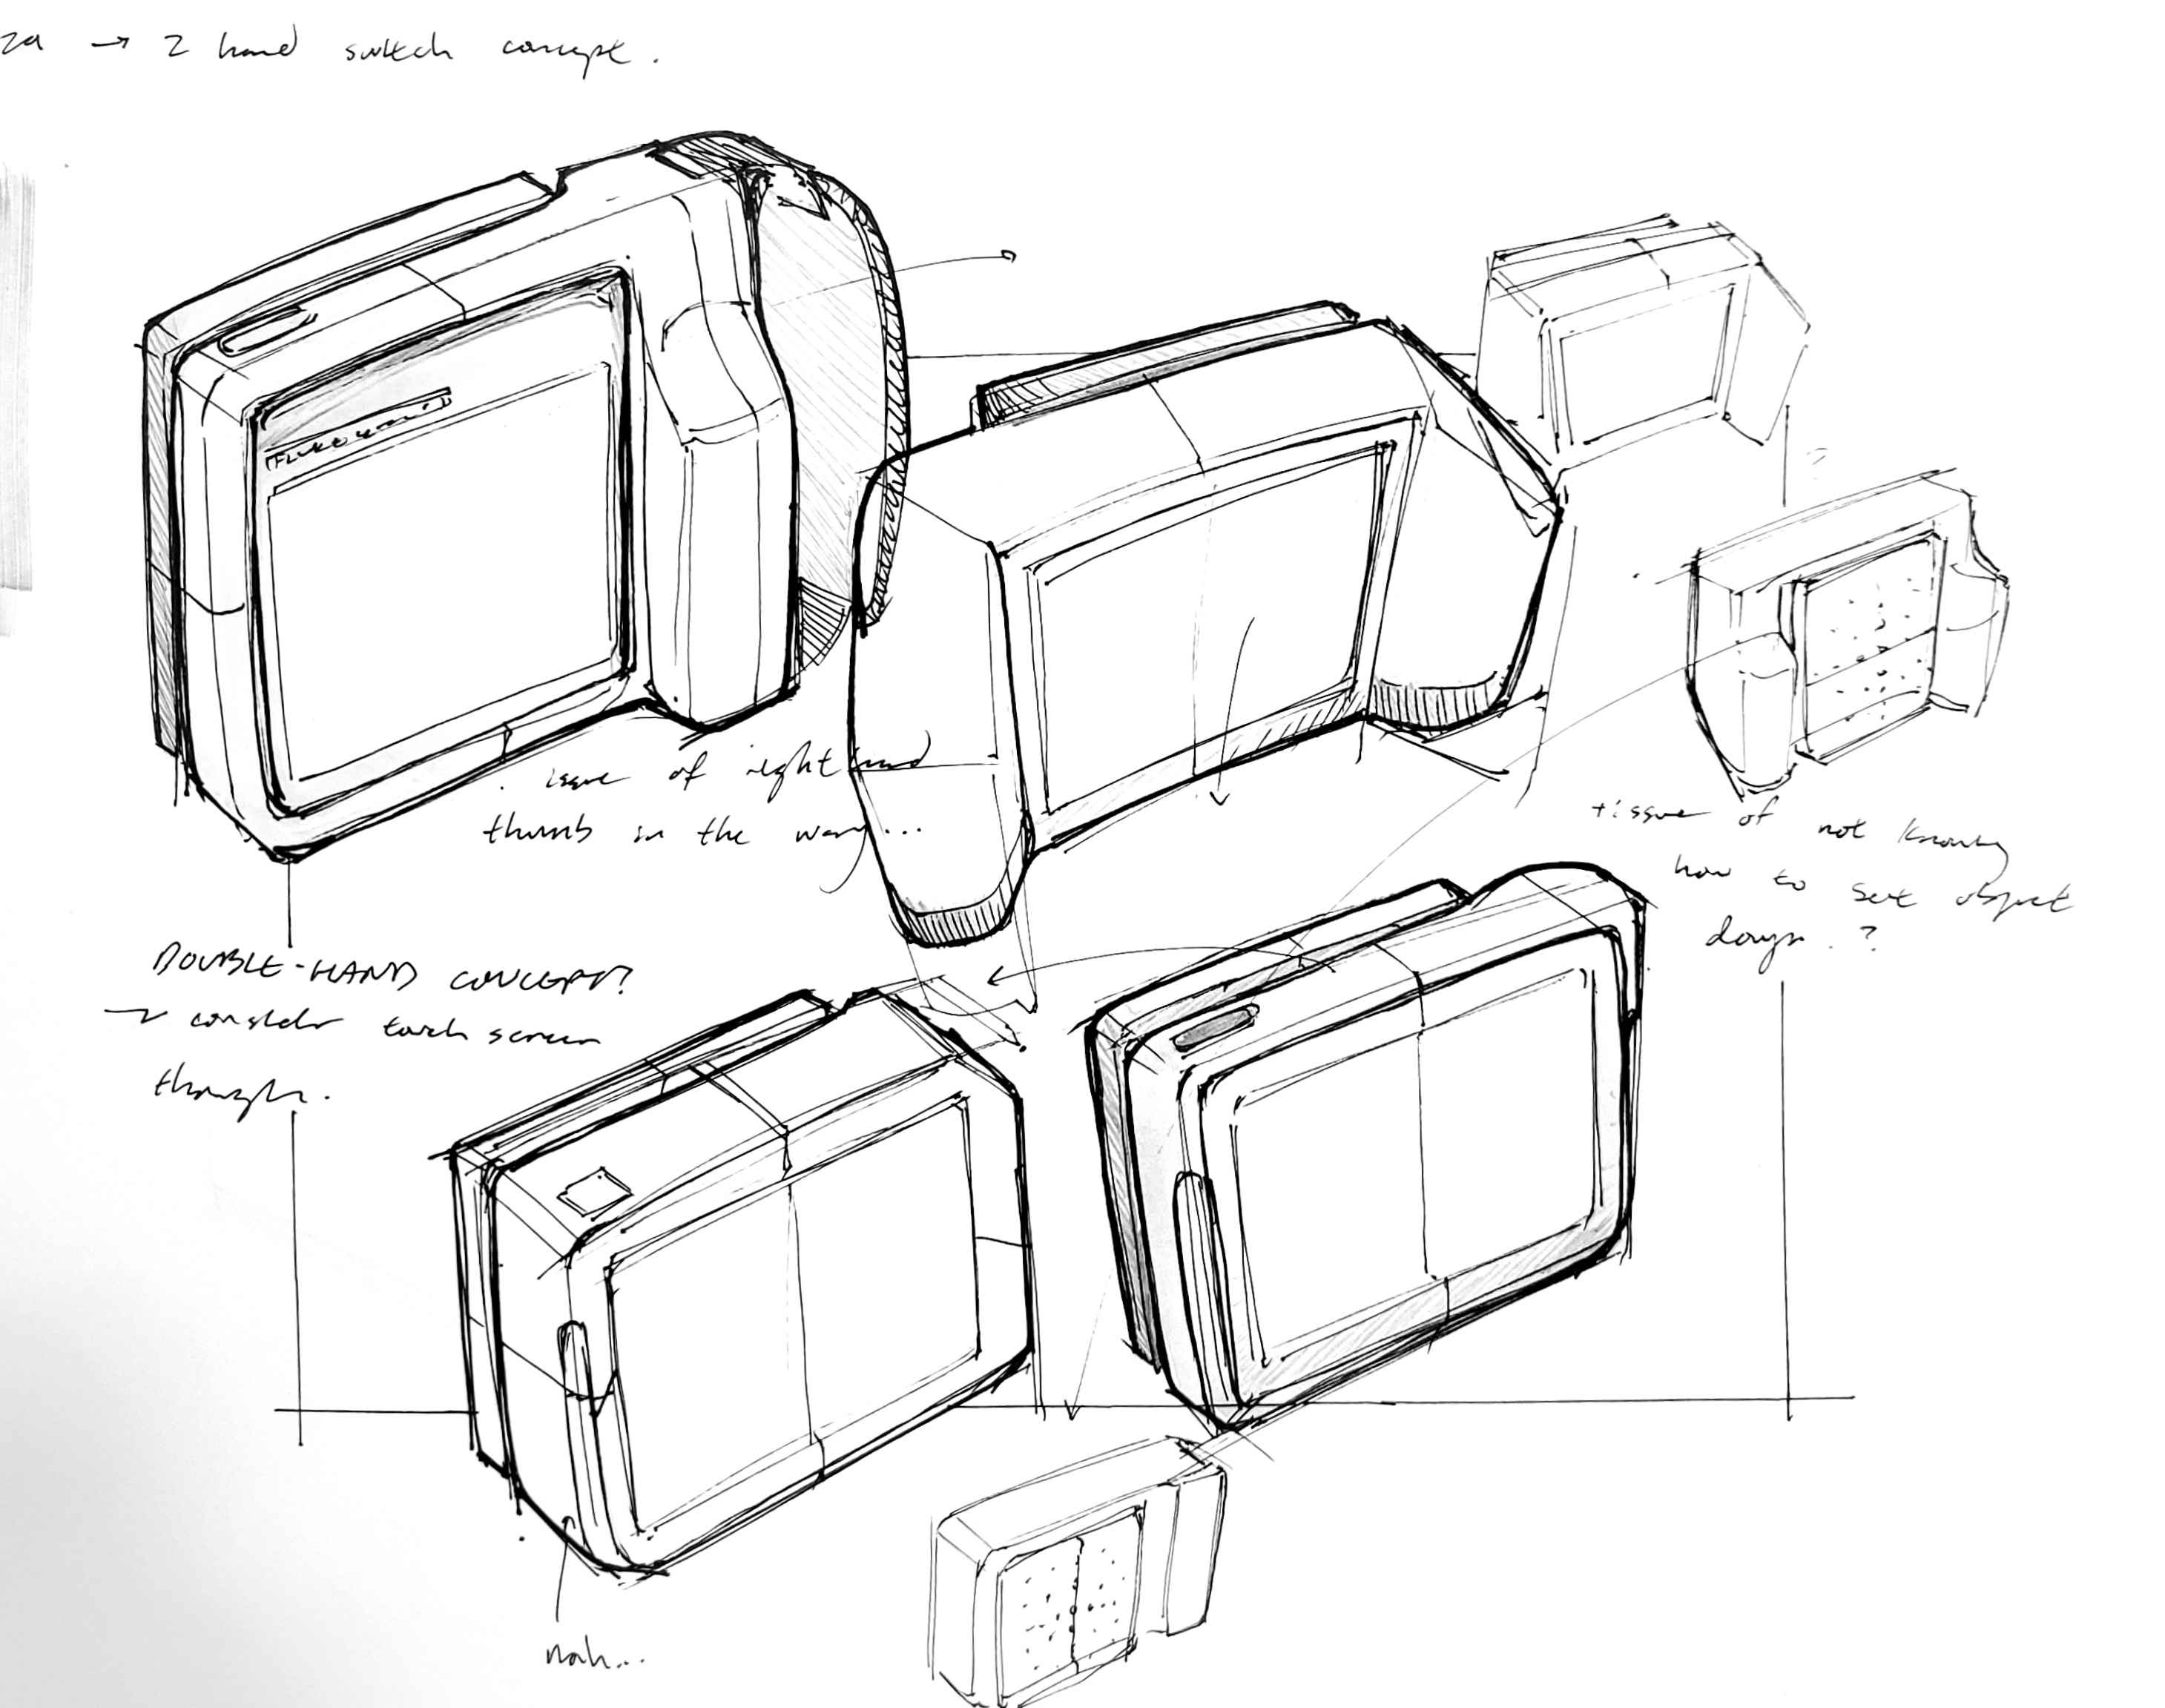 → 2 hand switch concept.
issue of right hand
thumb in the way...
+issue of not knowing
how to set object
down.?
DOUBLE-HAND CONCEPT?
→ consider touch screen
though.
nah...